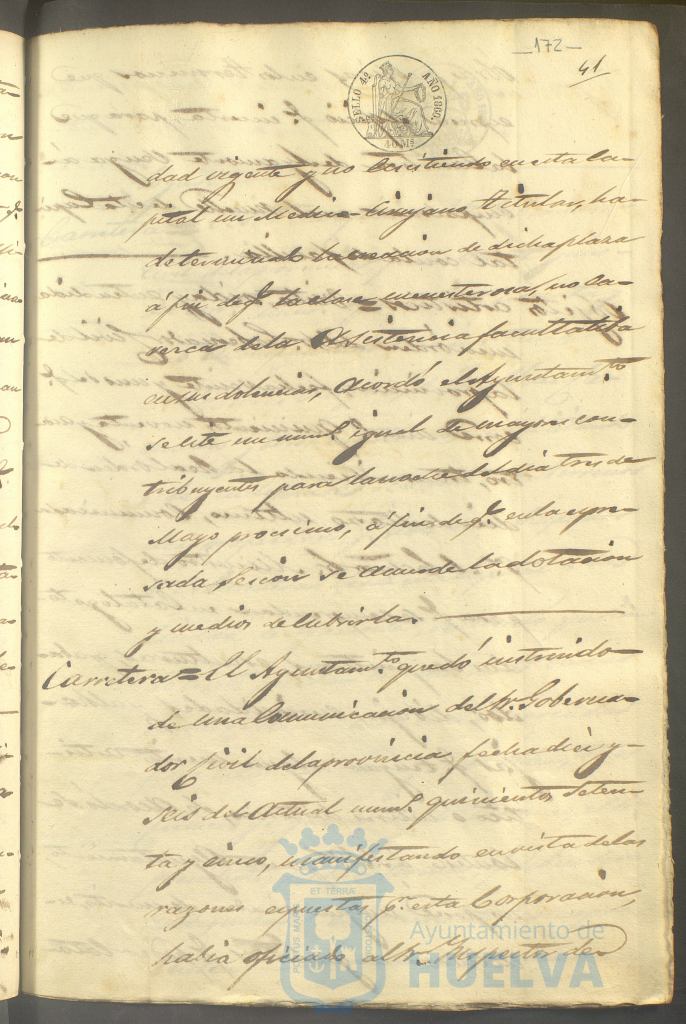 -172-
41
SELLO 4º AÑO 1860.
40 Mˢ
dad urgente y no ecsistiendo en esta Ca-
pital un Medico-Cirujano titular, ha-
determinado la creacion de dicha plaza
á fin de q.ᵉ la clase menesterosa, no ca-
rezca de la Asistencia facultativa
en sus dolencias, Acordó el Ayuntam.ᵗᵒ
se cite un num.º igual de mayores con-
tribuyentes para la noche del dia tres de
Mayo procsimo, á fin de q.ᵉ en la espre-
sada Sesion se acuerde la dotacion
y medios de cubrirla.
Carretera = El Ayuntam.ᵗᵒ quedó instruido
de una Comunicacion del Sr. Goberna-
dor Civil de la provincia fecha diez y
seis del Actual num.º quinientos seten-
ta y cinco, manifestando en vista de las
razones espuestas p.ʳ esta Corporacion,
habia oficiado al Sr. Ynspector de
PORTUS MARIS ET TERRÆ CUSTODIA
Ayuntamiento de
HUELVA